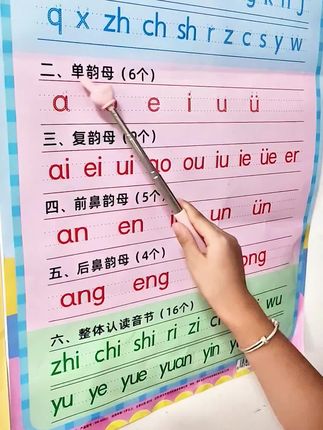 q x zh ch sh r z c s y w
二、单韵母（6个）
a e i u ü
三、复韵母（9个）
ai ei ui ao ou iu ie üe er
四、前鼻韵母（5个）
an en un ün
五、后鼻韵母（4个）
ang eng ong
六、整体认读音节（16个）
zhi chi shi ri zi ci si yi wu
yu ye yue yuan yin